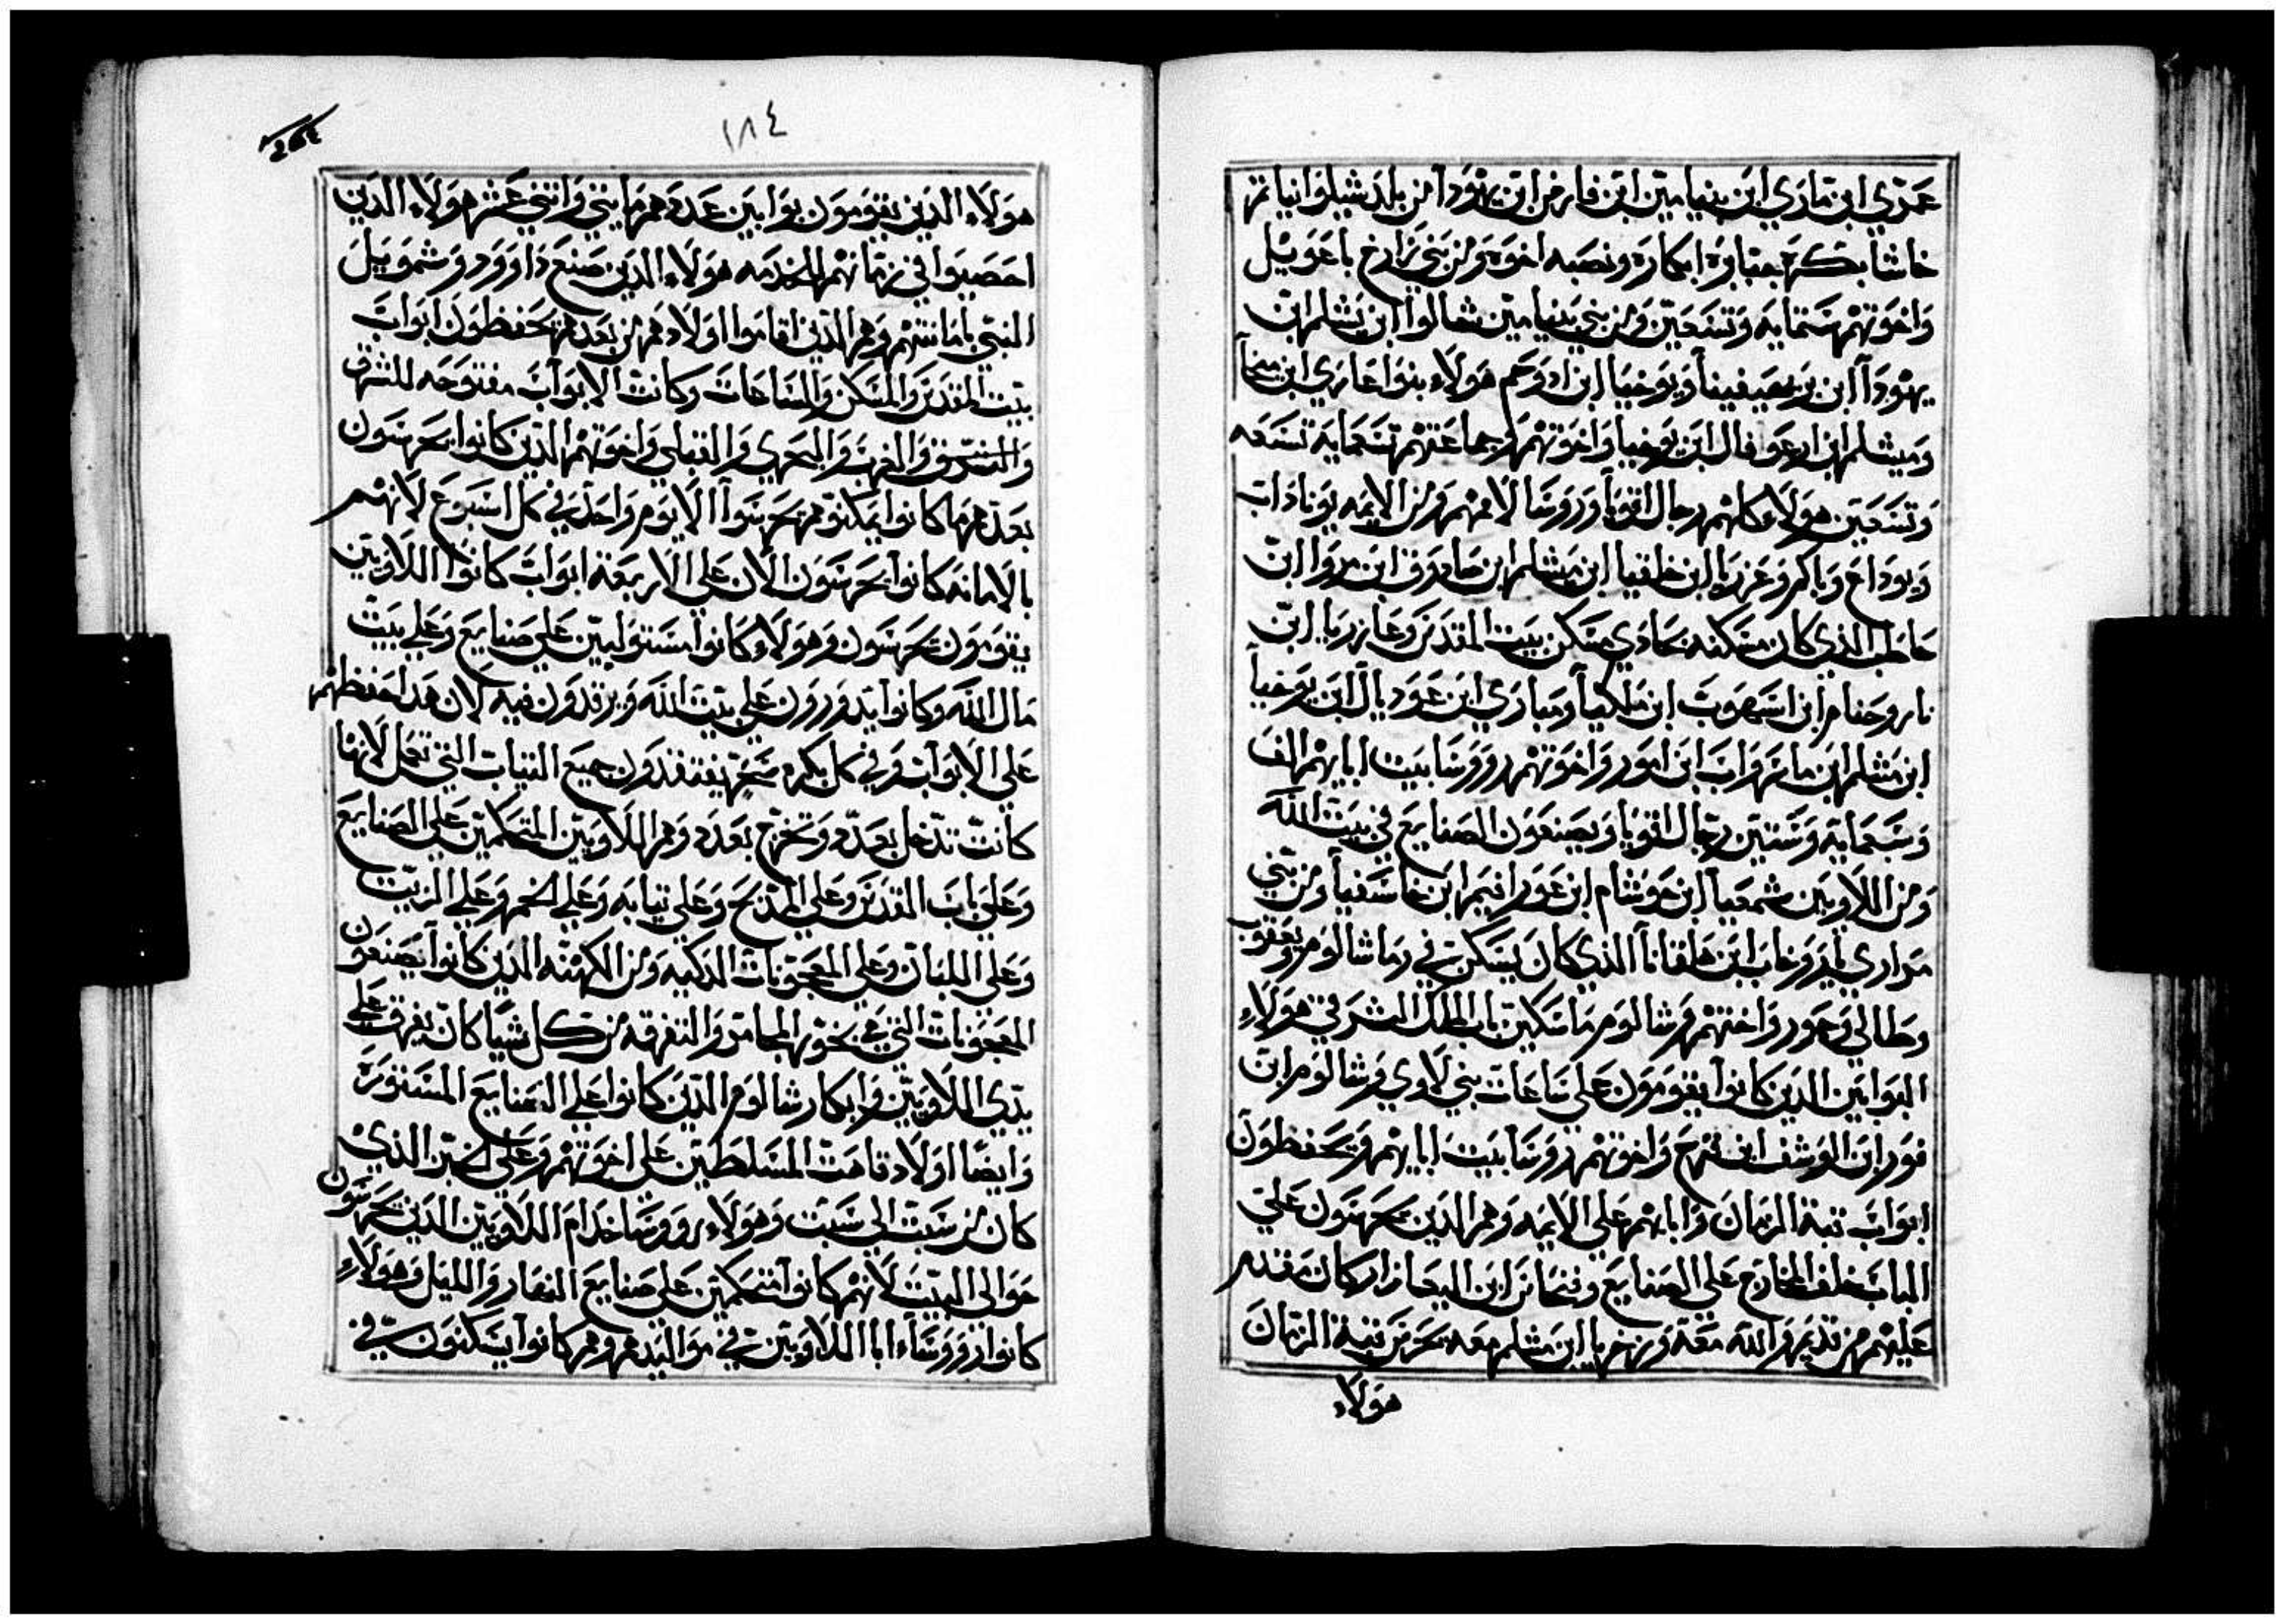 عمري ابن تاري ابن بنيامين ابن فارص ابن يهودا من بلد شيلوا نياتر
خاشا بكره جبابرة ابكاره ونصبه اخوة ومن بني زارح باعويل
واخوتهم ستمايه وتسعين ومن بني بنيامين شالوا ابن يشلم ابن
يهودا ابن يعيفينا ويوخنيا ابن ادوحم هولاء بنوا عازي ابن ميخا
وميشلم ابن ارعوفال ابن يوخنيا واخوتهم وجماعتهم تسعمايه تسعه
وتسعين هولاء كلهم رجال اقويا وروسا لاممهم ومن الايمه يوناداب
ويوداع وياكم وعزريا ابن خلقيا ابن مشلم ابن صادوق ابن مروا ابن
حاطب الذي كان مسكنه بحادي مسكن بيت المقدس وعازريا ابن
ناروحنام ابن اسهوب ابن ملكيا ومباري ابن عوديال ابن يوخنيا
ابن مشلم ابن ماتهواب ابن امور واخوتهم روسا بيت ابايهم الف
وسبعمايه وستين رجال اقويا ويصنعون الصنايع في بيت الله
ومن اللاويين شمعيا ابن حوشام ابن عورافيم ابن خاسفيا ومن بني
مواري بادروخاب ابن هلقانا الذي كان يسكن في رماشالوم ويعقوب
وطالي وحور واختهم وشالوم ماسكين باب الملك الشرقي هولاء
البوابين الذين كانوا يقومون على ساحات بني لاوي وشالوم ابن
فور ابن الوشف ابن قهرح واخوتهم روسا بيت ابايهم ويحفظون
ابواب قبة الزمان واباهم على الايمه وهم الذين يحرسون على
الباب خلف الخارج على الصنايع وفنحاس ابن اليعازار كان مقدم
عليهم من قديم والله معه وزخريا ابن مشلم معه يحرس قبة الزمان
هولاء
١٨٤
هولاء الذين يقومون بوابين عددهم مايتي واتني عشر هولاء الذين
احصيوا في زمانهم للخدمه هولاء الذين صنع داوود وشمويل
النبي بامانتهم وهم الذين اقاموا اولادهم من بعدهم يحفظون ابواب
بيت المقدس والمسكن والساحات وكانت الابواب مفتوحه للشرق
والشرق والغرب والبحري والقبلي واخوتهم الذين كانوا يحرسون
بعدهم ما كانوا يمكنوهم يحرسوا الا يوم واحد في كل اسبوع لانهم
بالامانه كانوا يحرسون الان على الاربعة ابواب كانوا اللاويين
يقومون يحرسون وهولاء كانوا مستوليين على صنايع وعلي بيت
مال الله وكانوا يدورون على بيت الله ويرقدون فيه لان هدا حفظهم
على الابواب وفي كل بكره سحر يفتقدون جميع التياب التي تعمل لانها
كانت تدخل بعدد وتخرج بعدد وهم اللاويين المتحكمين على الصنايع
وعلى باب القدس وعلي المذبح وعلى تيابه وعلي الخمر وعلي الزيت
وعلى اللبان وعلى المعجونات الذكيه ومن الكهنه الذين كانوا يصنعون
المعجونات التي في بخور المجامر والتفرقه من كل شيا كان يفرق علي
يدي اللاويين وابكار شالوم الذين كانوا على الصنايع المستورس
وايضا اولاد قاهت المسلطين على اخوتهم وعلي الخبز الذي
كان من سبت الى سبت وهولاء روسا خدام اللاويين الذين يحرسون
حوالى البيت لانهم كانوا متحكمين على صنايع النهار والليل وهولاء
كانوا روساء ابا اللاويين في مواليدهم وهم كانوا يسكنون في